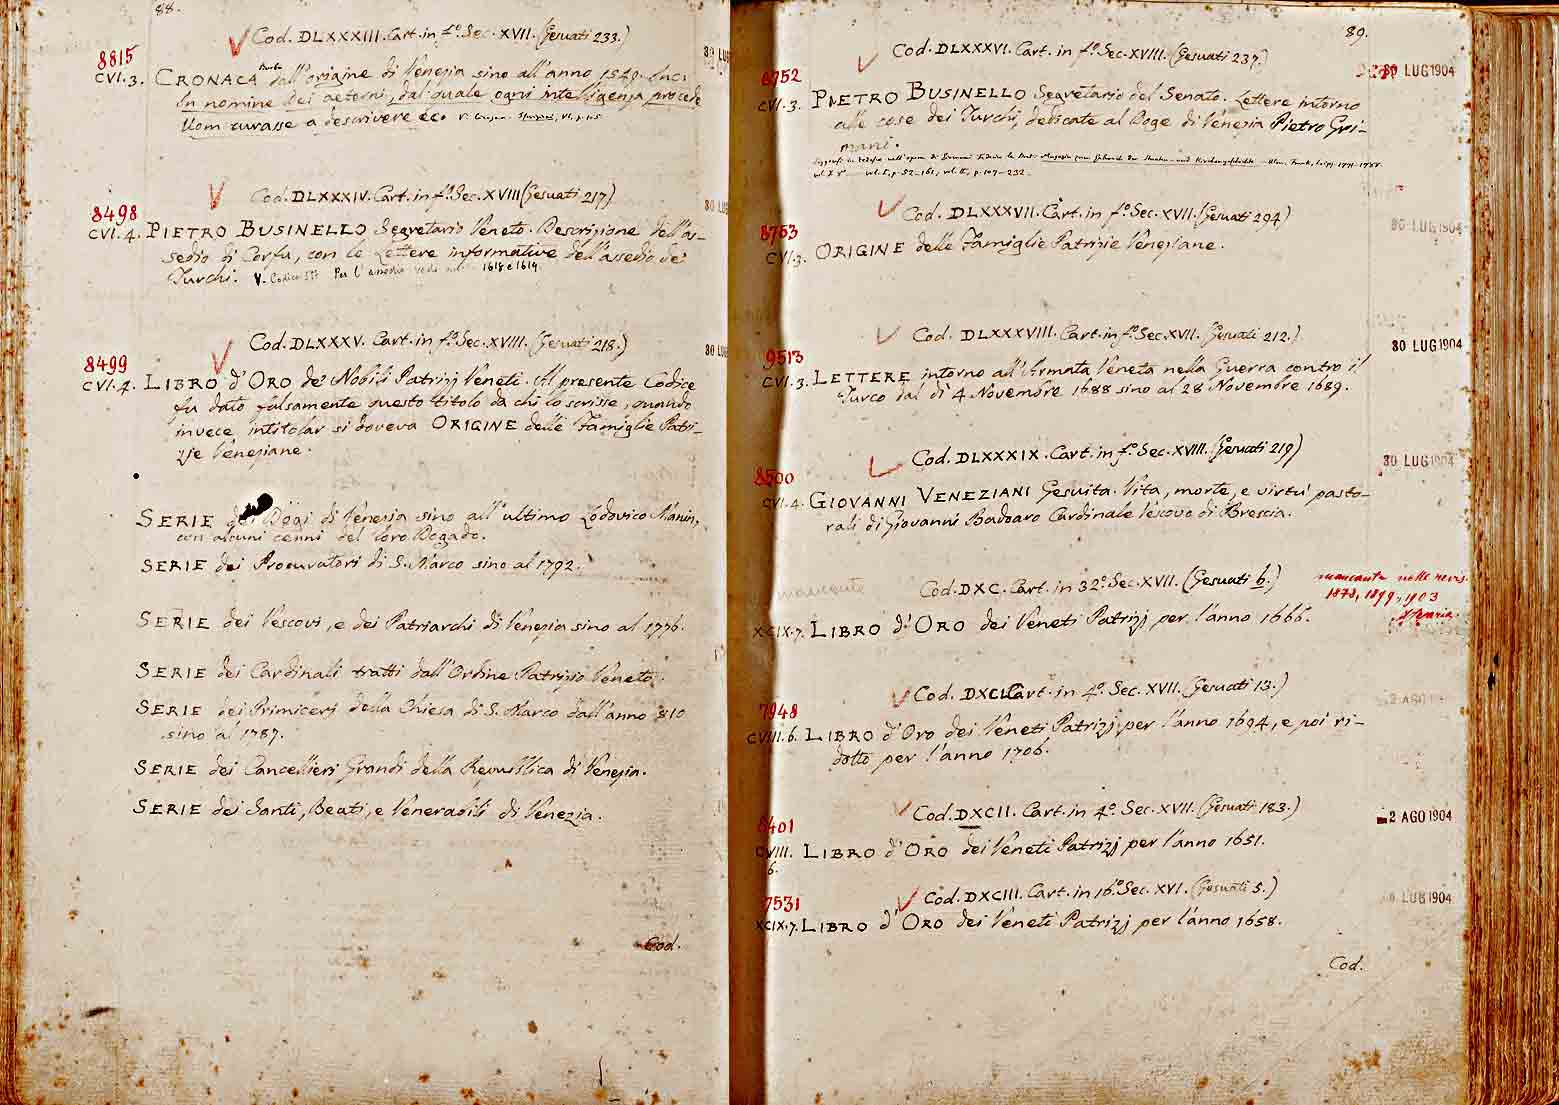 88.
Cod. DLXXXIII. Cart. in fº. Sec. XVII. (Gesuati 233.)
8815
CVI. 3. CRONACA dall'origine di Venezia sino all'anno 1549. Inc:
In nomine Dei aeterni, dal quale ogni intelligenza procede
Uom curasse a descrivere ec.
30 LUG
Cod. DLXXXIV. Cart. in fº. Sec. XVIII (Gesuati 217.)
8498
CVI. 4. PIETRO BUSINELLO Segretario Veneto. Descrizione dell'as-
sedio di Corfu, con le Lettere informative dell'assedio de'
Turchi. V. Codice Per l' 1618 e 1619
30 LUG
Cod. DLXXXV. Cart. in fº. Sec. XVIII. (Gesuati 218.)
8499
CVI. 4. LIBRO d'ORO de' Nobili Patrizj Veneti. Al presente Codice
fu dato falsamente questo titolo da chi lo scrisse, quando
invece intitolar si doveva ORIGINE delle Famiglie Patri-
zie Veneziane.
30 LUG
SERIE dei Dogi di Venezia sino all'ultimo Lodovico Manin,
con alcuni cenni del loro Dogado.
SERIE dei Procuratori di S. Marco sino al 1792.
SERIE dei Vescovi, e dei Patriarchi di Venezia sino al 1776.
SERIE dei Cardinali tratti dall'Ordine Patrizio Veneto.
SERIE dei Primicerj della Chiesa di S. Marco dall'anno 810
sino al 1787.
SERIE dei Cancellieri Grandi della Repubblica di Venezia.
SERIE dei Santi, Beati, e Venerabili di Venezia.
Cod.
89.
Cod. DLXXXVI. Cart. in fº. Sec. XVIII. (Gesuati 237.)
30 LUG 1904
8752
CVI. 3. PIETRO BUSINELLO Segretario del Senato. Lettere intorno
alle cose dei Turchi, dedicate al Doge di Venezia Pietro Gri-
mani.
Cod. DLXXXVII. Cart. in fº. Sec. XVII. (Gesuati 294)
30 LUG 1904
8753
CVI. 3. ORIGINE delle Famiglie Patrizie Veneziane.
Cod. DLXXXVIII. Cart. in fº. Sec. XVII. (Gesuati 212.)
30 LUG 1904
9513
CVI. 3. LETTERE intorno all'Armata Veneta nella Guerra contro il
Turco dal dì 4 Novembre 1688 sino al 28 Novembre 1689.
Cod. DLXXXIX. Cart. in fº. Sec. XVIII. (Gesuati 219)
30 LUG 1904
8500
CVI. 4. GIOVANNI VENEZIANI Gesuita. Vita, morte, e virtù pasto-
rali di Giovanni Badoaro Cardinale Vescovo di Brescia.
mancante Cod. DXC. Cart. in 32º. Sec. XVII. (Gesuati 6.) mancante nelle revis.
1878, 1899, 1903
XCIX. 7. LIBRO d'ORO dei Veneti Patrizj per l'anno 1666.
Cod. DXCI. Cart. in 4º. Sec. XVII. (Gesuati 13.)
2 AGO
7948
CVIII. 6. LIBRO d'Oro dei Veneti Patrizj per l'anno 1694, e poi ri-
dotto per l'anno 1706.
Cod. DXCII. Cart. in 4º. Sec. XVII. (Gesuati 183.)
2 AGO 1904
8401
CVIII. 6. LIBRO d'ORO dei Veneti Patrizj per l'anno 1651.
Cod. DXCIII. Cart. in 16º. Sec. XVI. (Gesuati 5.)
LUG 1904
7531
XCIX. 7. LIBRO d'ORO dei Veneti Patrizj per l'anno 1658.
Cod.